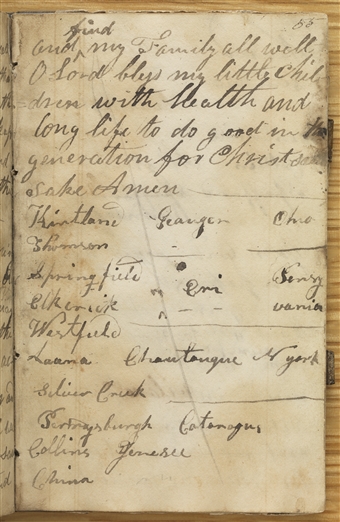 55
find
and my Family all well
O Lord bless my little Chil-
dren with Health and
long life to do good in
generation for Christ
Sake Amen
Kirtland Geauger Ohio
Thomson
Springfield " Eri Pensy
Elkcrick " vania
Westfield
Laana Chautauque N york
Silver Creek
Perrysburgh Cataraugus
Collins Genesee
China